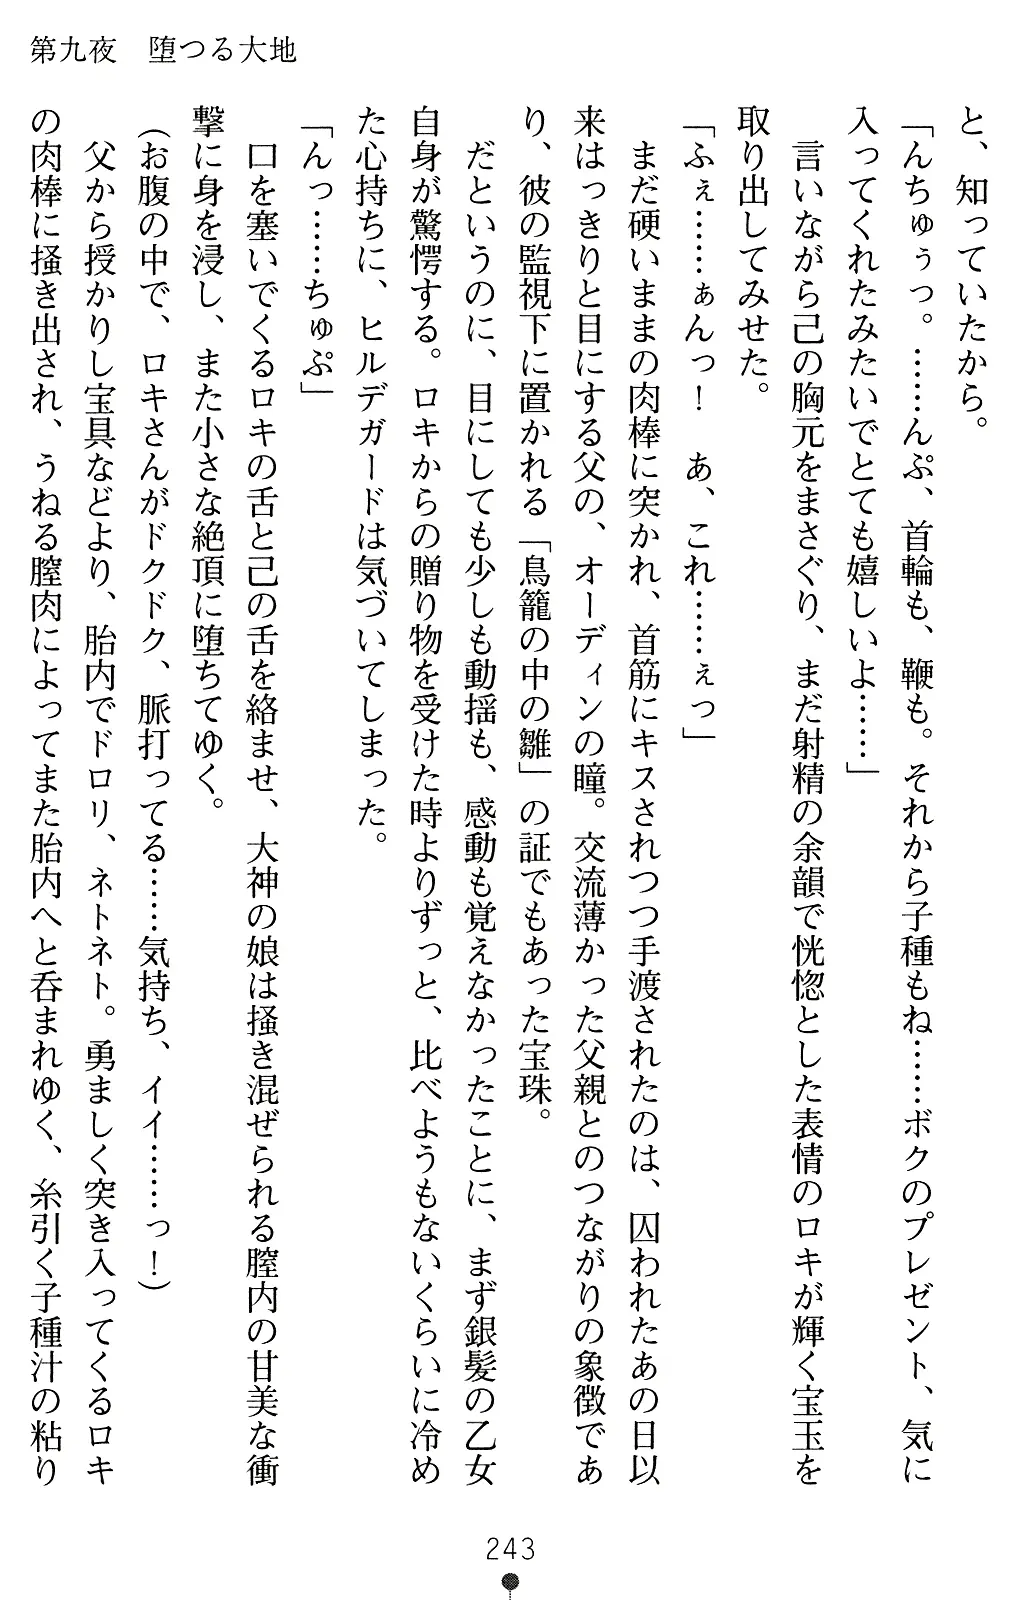 第九夜　堕つる大地
と、知っていたから。
「んちゅぅっ。……んぷ、首輪も、鞭も。それから子種もね……ボクのプレゼント、気に
入ってくれたみたいでとても嬉しいよ……」
　言いながら己の胸元をまさぐり、まだ射精の余韻で恍惚とした表情のロキが輝く宝玉を
取り出してみせた。
「ふぇ……ぁんっ！　あ、これ……ぇっ」
　まだ硬いままの肉棒に突かれ、首筋にキスされつつ手渡されたのは、囚われたあの日以
来はっきりと目にする父の、オーディンの瞳。交流薄かった父親とのつながりの象徴であ
り、彼の監視下に置かれる「鳥籠の中の雛」の証でもあった宝珠。
　だというのに、目にしても少しも動揺も、感動も覚えなかったことに、まず銀髪の乙女
自身が驚愕する。ロキからの贈り物を受けた時よりずっと、比べようもないくらいに冷め
た心持ちに、ヒルデガードは気づいてしまった。
「んっ……ちゅぷ」
　口を塞いでくるロキの舌と己の舌を絡ませ、大神の娘は掻き混ぜられる膣内の甘美な衝
撃に身を浸し、また小さな絶頂に堕ちてゆく。
（お腹の中で、ロキさんがドクドク、脈打ってる……気持ち、イイ……っ！）
　父から授かりし宝具などより、胎内でドロリ、ネトネト。勇ましく突き入ってくるロキ
の肉棒に掻き出され、うねる膣肉によってまた胎内へと呑まれゆく、糸引く子種汁の粘り
243